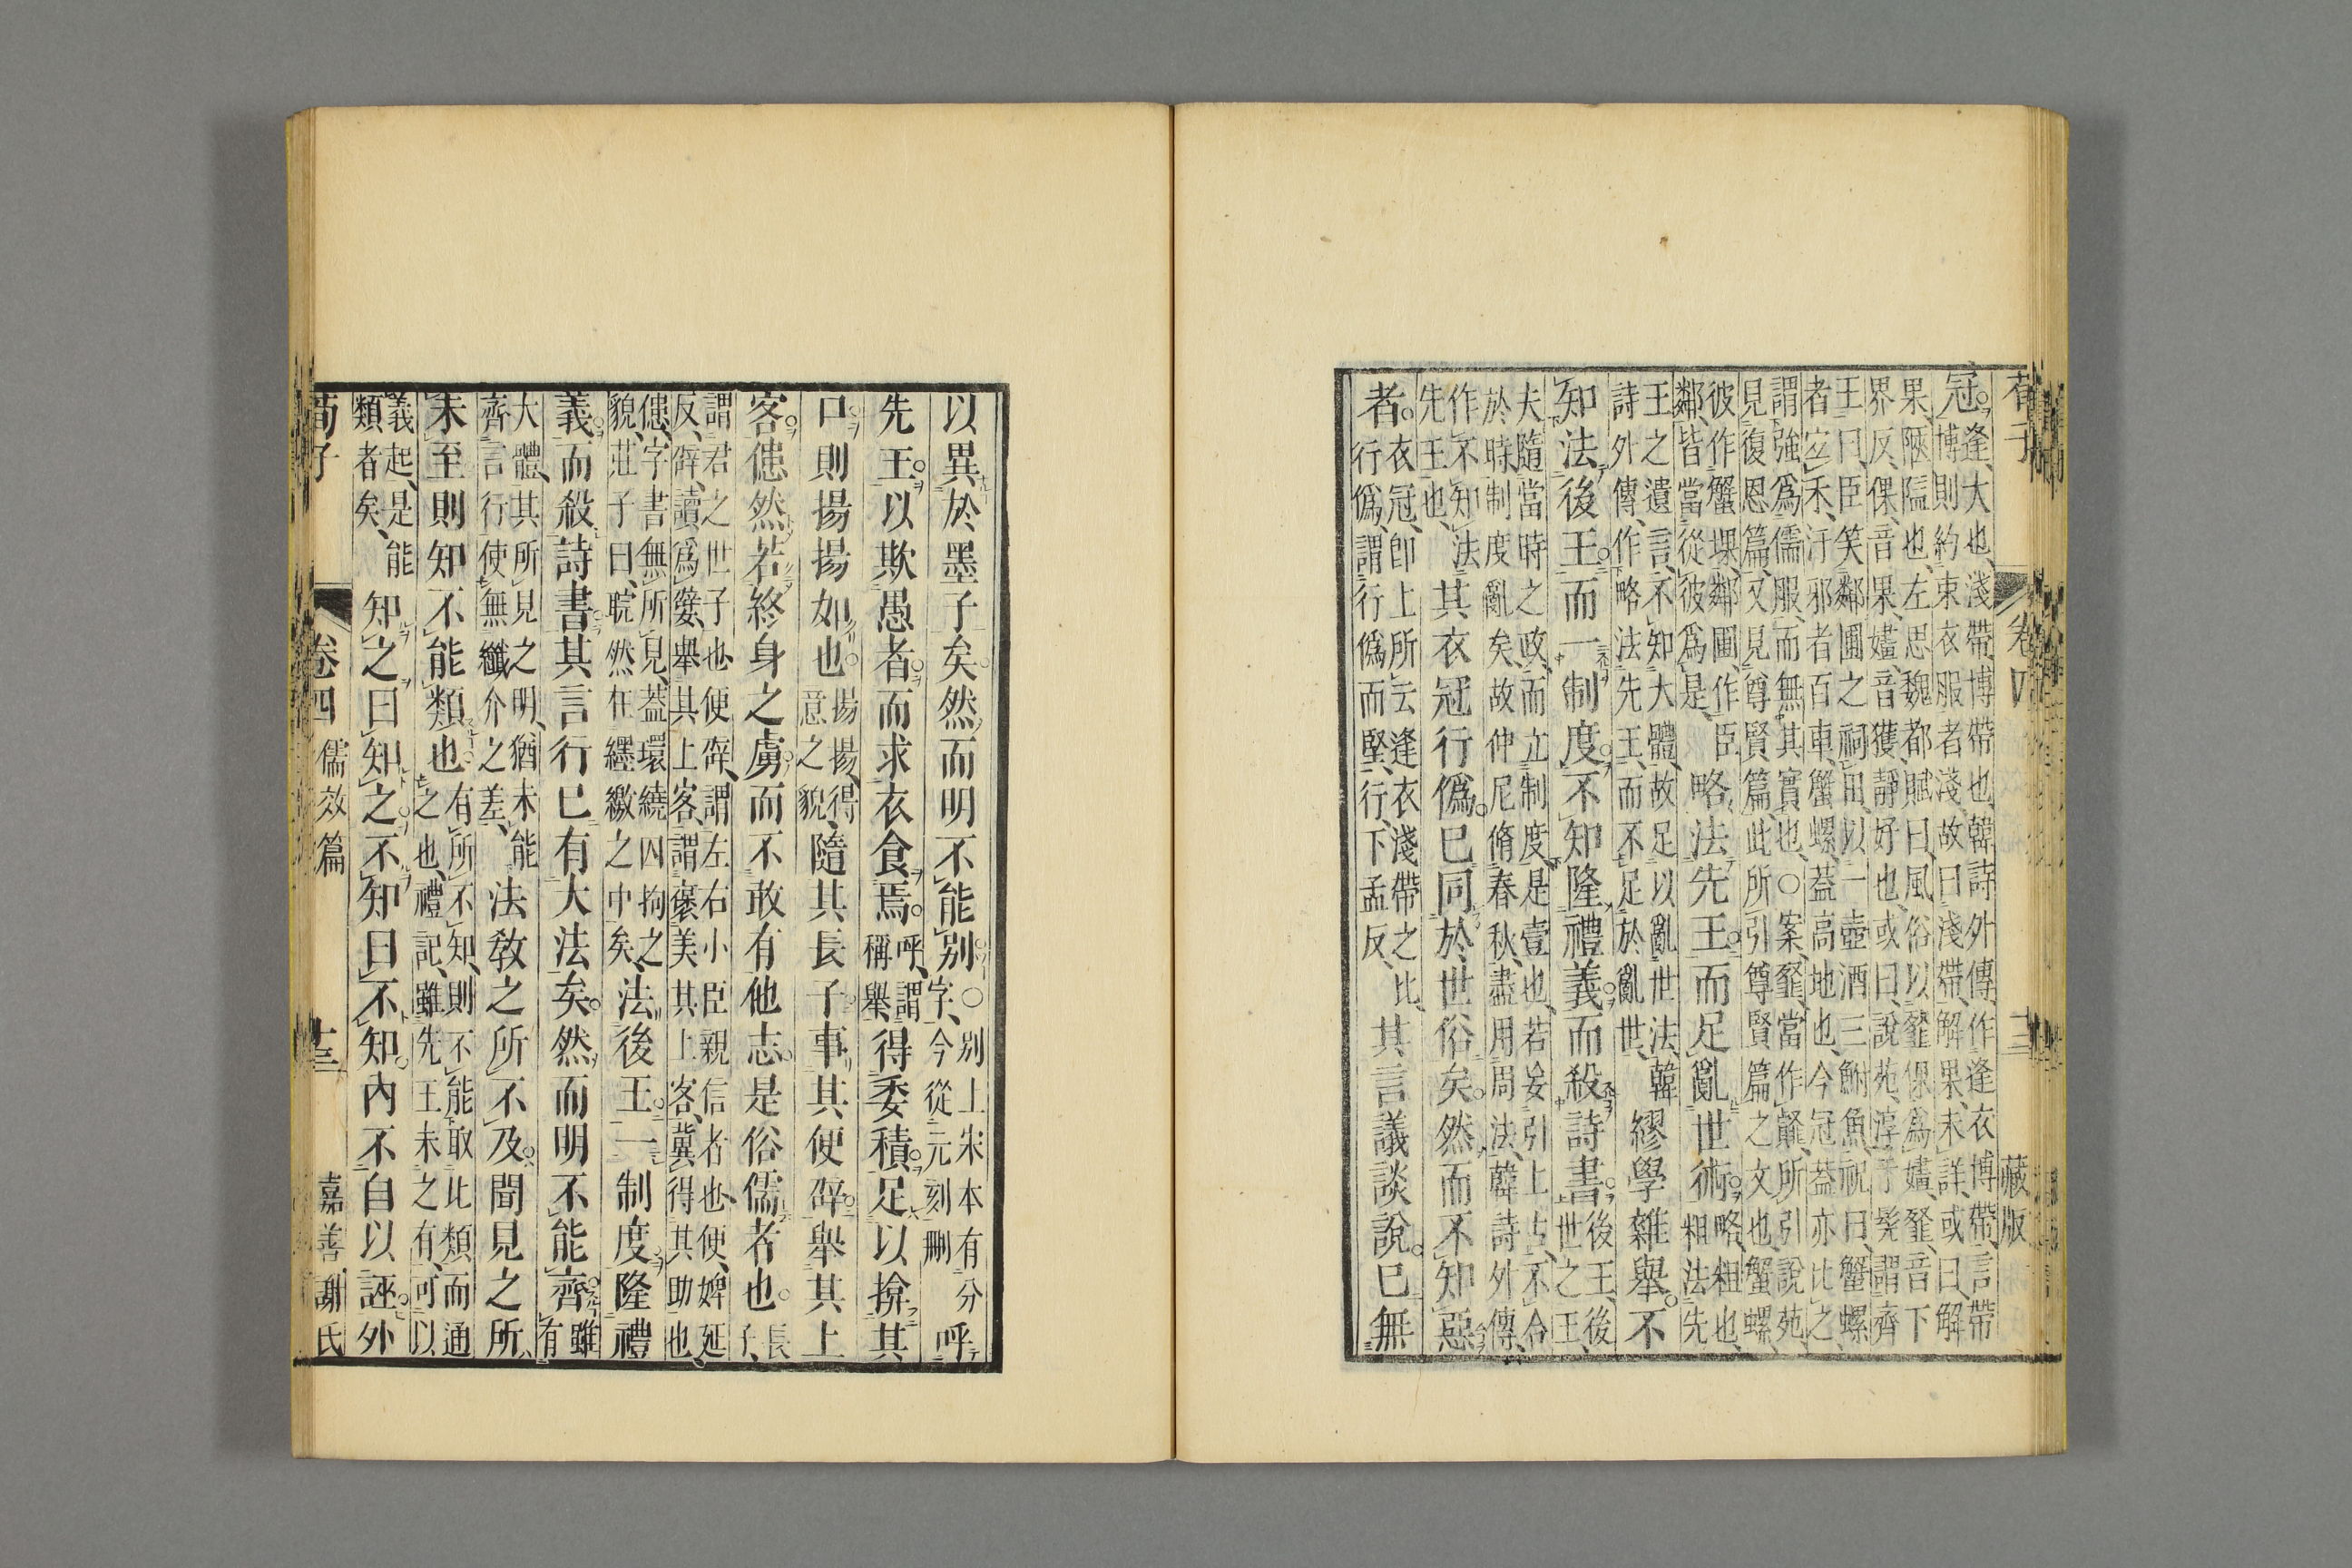 荀子 卷四 藏版
冠。逢、大也、淺帶、博帶也、韓詩外傳、作逢衣博帶、言帶
博則約束衣服者淺、故曰淺帶、解果、未詳、或曰解
果、陿隘也、左思魏都賦曰、風俗以韰倮爲嫿、韰音下
界反、倮、音果、嫿、音獲、靜好也、或曰、說苑、淳于髡謂齊
王曰、臣笑鄰圃之祠田、以一壺酒三鮒魚、祝曰、蟹螺
者宐禾、汙邪者百車、蟹螺、蓋高地也、今冠蓋亦比之、
謂強爲儒服、而無其實也、〇案、韰當作、所引說苑、
見復恩篇、又見尊賢篇、此所引尊賢篇之文也、蟹螺、
彼作蟹堁、鄰圃、作臣
鄰、皆當從彼爲是、略法先王。而足亂世術。略、粗也、
粗法先
王之遺言、不知大體、故足以亂世法、韓
詩外傳、作略法先王、而不足於亂世、繆學雜舉。不
知法後王。而一制度。不知隆禮義。而殺詩書。後王、後
世之王、
夫隨當時之政、而立制度、是壹也、若妄引上古、不合
於時、制度亂矣、故仲尼脩春秋、盡用周法、韓詩外傳、
作不知法
先王也、其衣冠行僞。已同於世俗矣。然而不知惡
者。衣冠、卽上所云逢衣淺帶之比、
行僞、謂行僞而堅、行、下孟反、其言議談說。已無
以異於墨子矣。然而明不能別。〇別上宋本有分
字、今從元刻刪 呼
先王。以欺愚者。而求衣食焉。呼、謂
稱舉、得委積。足以揜其
口。則揚揚如也。揚揚、得
意之貌、隨其長子。事其便辟。舉其上
客。傂然若終身之虜。而不敢有他志。是俗儒者也。長
子、
謂君之世子也、便辟、謂左右小臣親信者也、便、婢延
反、辟、讀爲嬖、舉其上客、謂褒美其上客、冀得其助也、
傂、字書無所見、蓋環繞囚拘之
貌、莊子曰、睆然在纆繳之中矣、法後王。一制度。隆禮
義。而殺詩書。其言行已有大法矣。然而明不能齊。雖
有
大體、其所見之明、猶未能
齊言行使無纖介之差、法敎之所不及。聞見之所
未至。則知不能類也。有所不知、則不能取比類而通
之也、禮記、雖先王未之有、可以
義起、是能
類者矣、知之曰知之。不知曰不知。內不自以誣。外
荀子 卷四 儒效篇 十三 嘉善謝氏